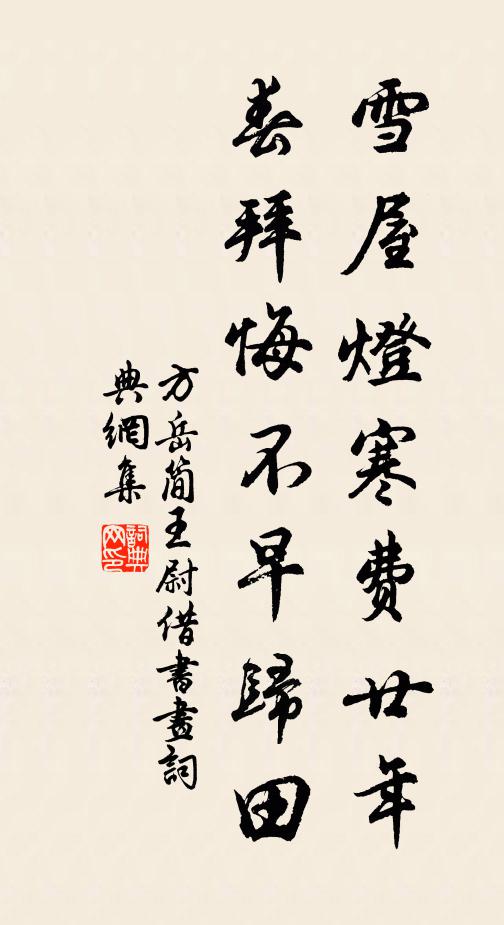 雪屋燈寒費廿年
春拜悔不早歸田
方岳簡王尉借書畫詞
典網集
詞典
网印